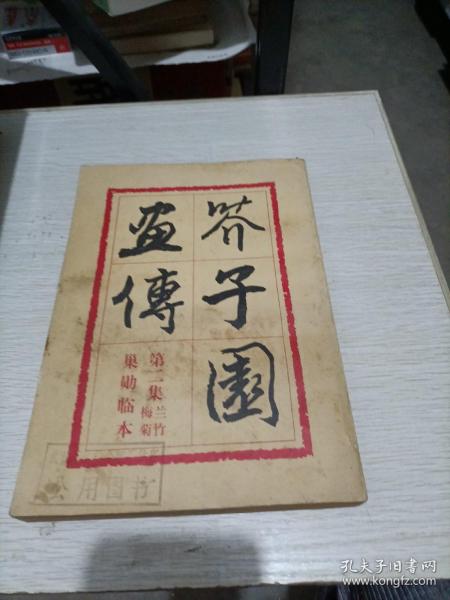 芥子園
畫傳
第二集 兰竹
梅菊
巢勋临本
公用图书
孔夫子旧书网
www.kongfz.com